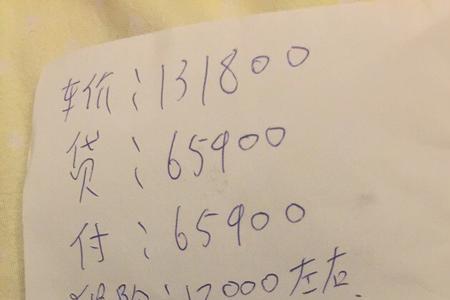 车价：131800
贷：65900
付：65900
：12000左右